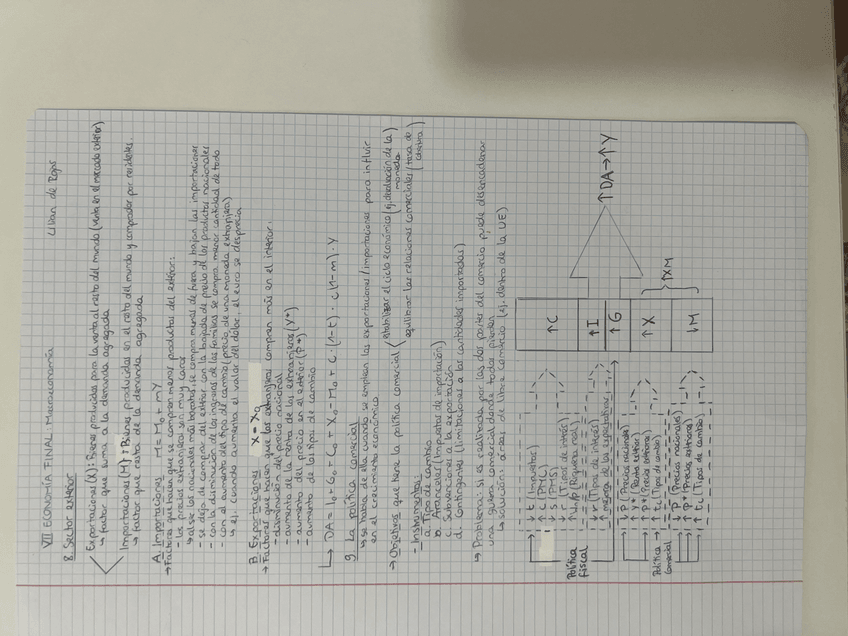 VII ECONOMÍA FINAL: Macroeconomía
8. Sector exterior
Exportaciones (X): Bienes producidos para la venta al resto del mundo (venta en el mercado exterior)
↳ factor que suma a la demanda agregada
Importaciones (M): Bienes producidos en el resto del mundo y comprados por residentes.
↳ factor que resta de la demanda agregada
A. Importaciones M = M₀ + mY
→ Factores que hacen que se compren menor productos del exterior:
- los precios extranjeros son muy caros
↳ al ser los nacionales más baratos se compra menos de fuera y bajan las importaciones
- se deja de comprar del exterior con la bajada de precio de los productos nacionales
- con la disminución de los ingresos de las familias se compra menor cantidad de todo
- con el aumento del tipo de cambio (precio de una moneda extranjera)
↳ ej. cuando aumenta el valor del dólar, el euro se desprecia
B. Exportaciones X = X₀
→ Factores que hacen que los extranjeros compren más en el interior:
- disminución del precio nacional
- aumento de la renta de los extranjeros (Y*)
- aumento del precio en el exterior (P*)
- aumento de los tipos de cambio
↳ DA = I₀ + G₀ + C₀ + X₀ - M₀ + C · (1-t) · c(1-m) · Y
9. La política comercial
↳ se habla de ella cuando se emplean las exportaciones/importaciones para influir
en el crecimiento económico
→ Objetivos que tiene la política comercial
estabilizar el ciclo económico (ej. devaluación de la moneda)
equilibrar las relaciones comerciales (tasa de cobertura)
- Instrumentos:
a. Tipo de cambio
b. Aranceles (Impuestos de importación)
c. Subvenciones a la exportación
d. Contingentes (limitaciones a las cantidades importadas)
↳ Problema: si es realizada por las dos partes del comercio puede desencadenar
una guerra comercial donde todos pierden
↳ solución: áreas de libre comercio (ej. dentro de la UE)
↓ t (Impuestos)
↑ c (PMC)
↓ s (PMS)
↓ r (Tipos de interés)
↑ C
Política fiscal
↓ r (Tipos de interés)
↑ I
↑ G
↓ P (Precios nacionales)
↑ Y* (Renta exterior)
↑ P* (Precios exteriores)
↑ tc (Tipo de cambio)
↑ X
Política comercial
↓ P (Precios nacionales)
↑ P* (Precios exteriores)
↑ tc (Tipos de cambio)
↓ M
↑ XM
↑ DA → ↑ Y